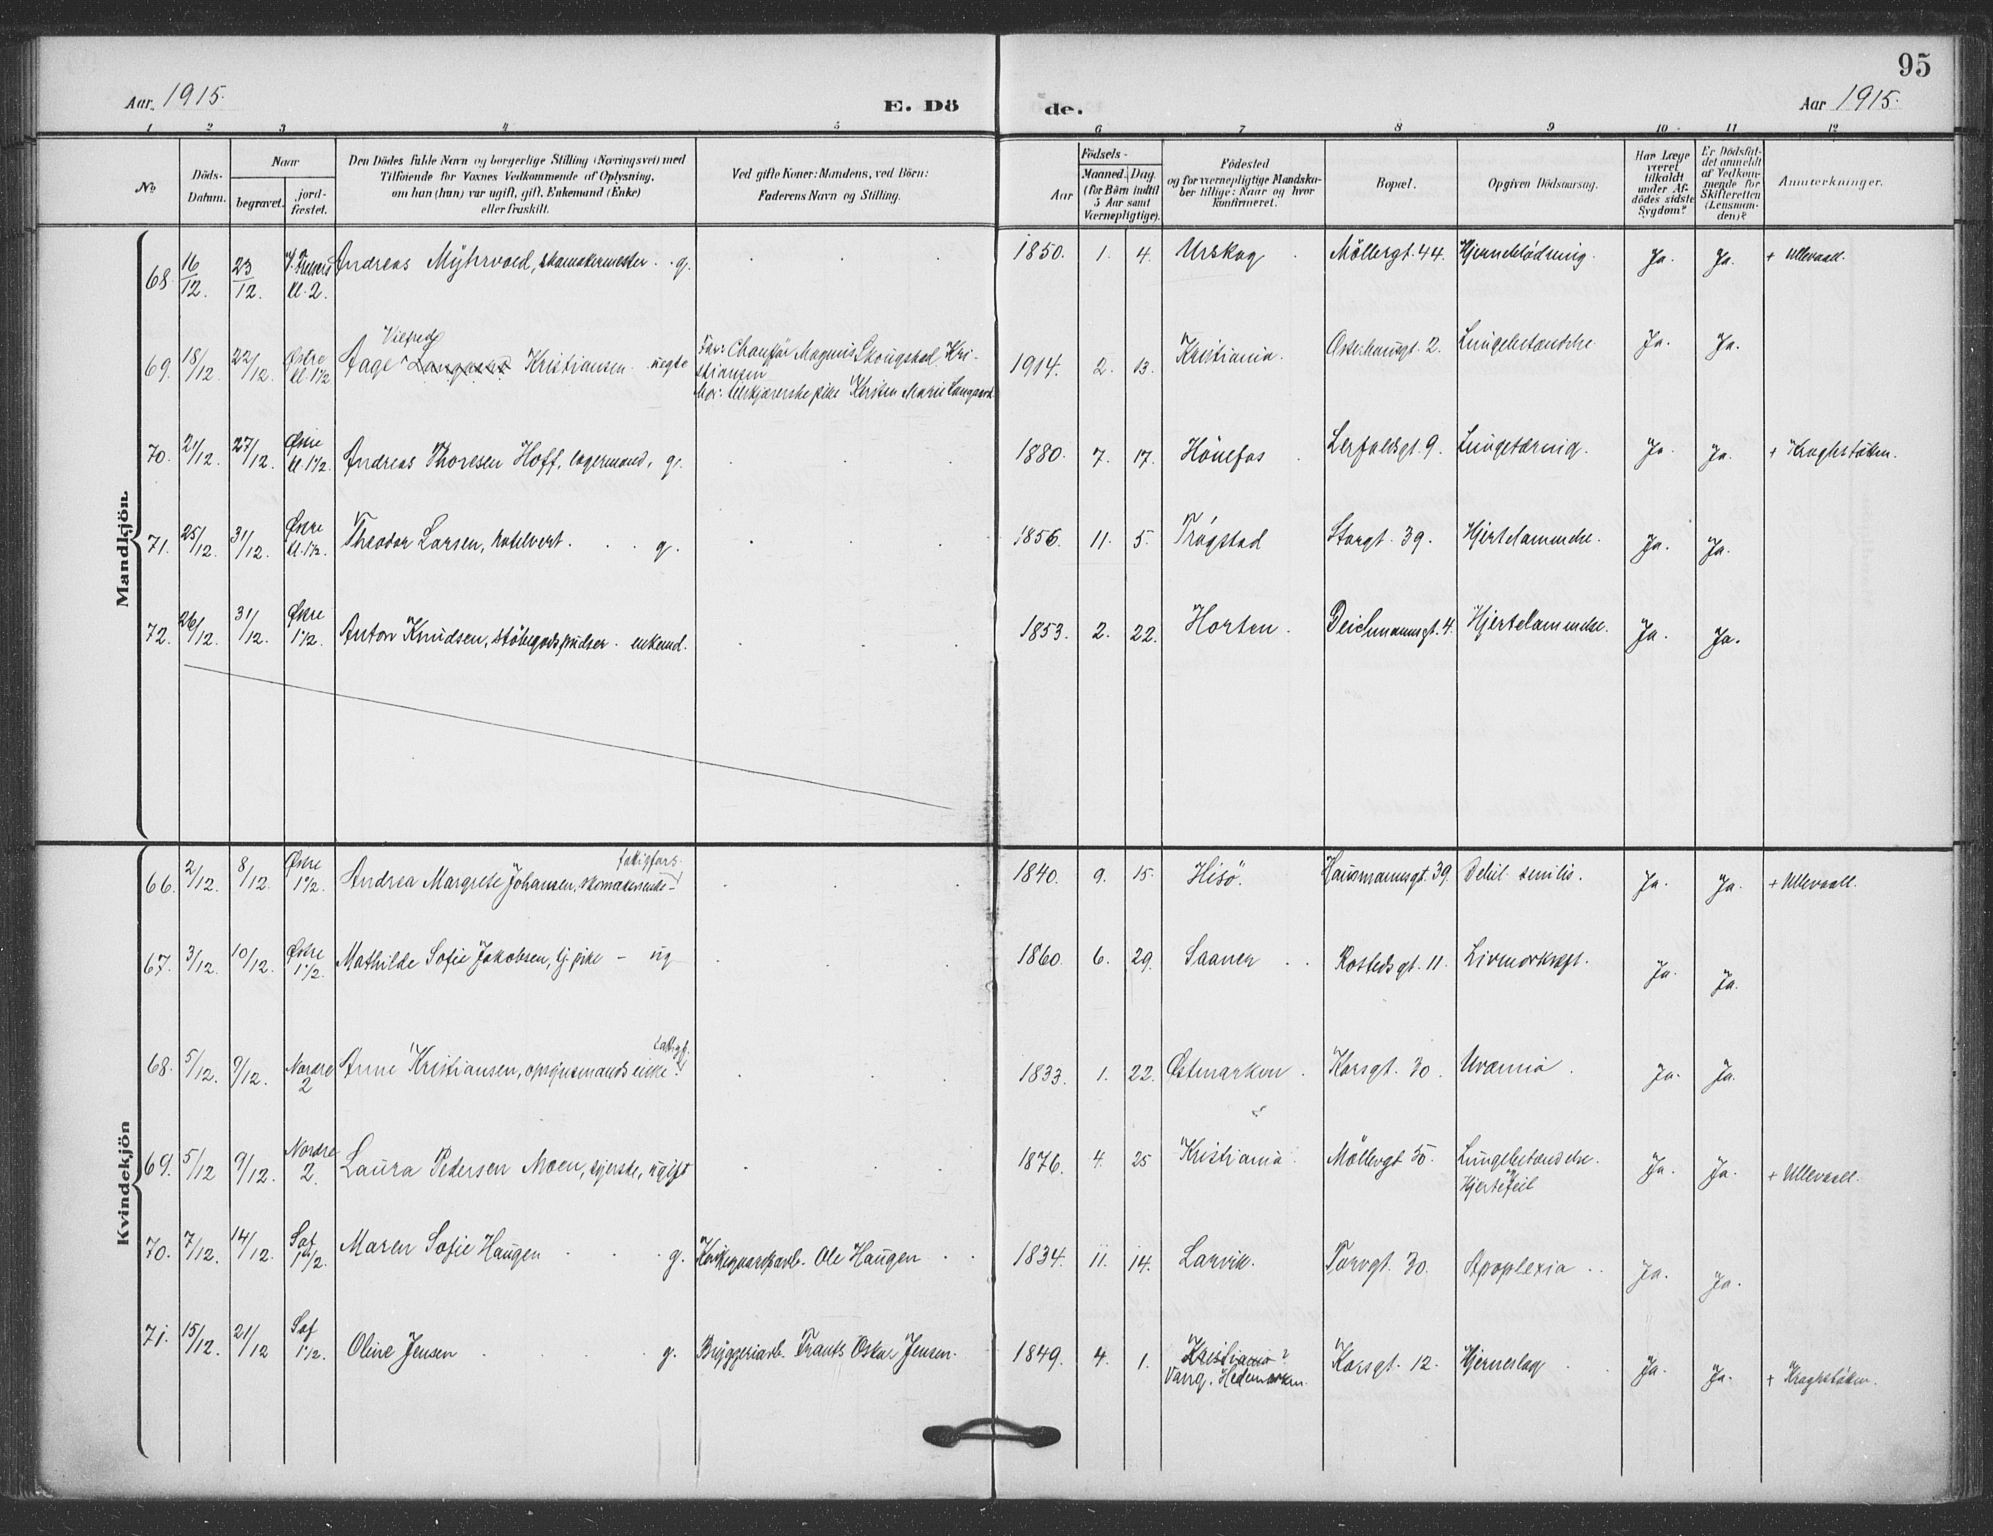 95
Aar. 1915.
E. Dö
de.
Aar 1915.
1 2 3 4 5 6 7 8 9 10 11 12
No
Döds-
Datum.
Naar
begravet.
jord-
fæstet.
Den Dödes fulde Navn og borgerlige Stilling (Næringsvei) med
Tilføiende for Voxnes Vedkommende af Oplysning,
om han (hun) var ugift, gift, Enkemand (Enke)
eller fraskilt.
Ved gifte Koner: Mandens, ved Börn:
Faderens Navn og Stilling.
Födsels-
Aar
Maaned. Dag.
(for Börn indtil
5 Aar samt
Værnepligtige).
Födested
og for værnepligtige Mandska-
ber tillige: Naar og hvor
konfirmeret.
Bopæl.
Opgiven Dödsaarsag.
Har Læge
været
tilkaldt
under Af-
dödes sidste
Sygdom?
Er Dödsfal-
det anmeldt
af Vedkom-
mende for
Skifteretten
(Lensman-
den)?
Anmærkninger.
Mandkjön.
68. 16/12. 23/12. kl. 2. Andreas Myhrvold, skomakermester. g. 1850. 1. 4. Urskog Möllergt. 44. Hjerneblödning. Ja. Ja. + Ullevaall.
Vilfred
69. 18/12. 22/12. Østre kl. 1½ Aage Langaard Kristiansen. uegte Far: Chauför Magnus Skougstad Kri-
stiansen
Mor: Kirsten Marie Langaard 1914. 2. 13. Kristiania. Osterhausgt. 2. Lungebetændelse. Ja. Ja.
70. 21/12. 27/12. Østre kl. 1½. Andreas Thoresen Hoff, lagermand, g. 1880. 7. 17. Hönefos Lerfaldsgt. 9. Lungetæring. Ja. Ja. + Kraghstöken.
71. 25/12. 31/12. Østre kl. 1½. Theodor Larsen, hotelvert. g. 1856. 11. 5. Trögstad Storgt. 39. Hjertelammelse. Ja. Ja.
72. 26/12. 31/12. Østre 1½. Anton Knudsen, stöbegodspudser. enkemd. 1853. 2. 22. Horten. Deichmannsgt. 4. Hjertelammelse. Ja. Ja.
Kvindekjön
fattigfors.
66. 2/12. 8/12. Østre 1½. Andrea Margrete Johansen, skomakerenke 1840. 9. 15. Hisö. Hausmannsgt. 39. Debil. senilis. Ja. Ja. + Ullevaall.
67. 3/12. 10/12. Østre 1½. Mathilde Sofie Jakobsen, tj. pike - ug 1860. 6. 29. Saaner Rostedsgt. 11. Livmorkræft. Ja. Ja.
fattigf.
68. 5/12. 9/12. Nordre 2 Anne Kristiansen, opsynsmands enke. 1833. 1. 22. Østmarken. Korsgt. 30. Uræmia. Ja. Ja.
69. 5/12 9/12. Nordre 2. Laura Pedersen Moen, syerske, ugift 1876. 4. 25 Kristiania. Möllergt 50. Lungebetændelse.
Hjertefeil Ja. Ja. + Ullevaall.
70. 7/12. 14/12. Sof 1½. Maren Sofie Haugen g. Kirkegaardsarb. Ole Haugen 1834. 11. 14. Larvik. Torvgt. 30. Apoplexia Ja. Ja.
71. 15/12. 21/12 Sof 1½. Oline Jensen g. Bryggeriarb. Frants Oskar Jensen. 1849. 4. 1. Kristiania?
Vang. Hedemarken. Korsgt. 12. Hjerneslag Ja. Ja. + Kraghstöken.